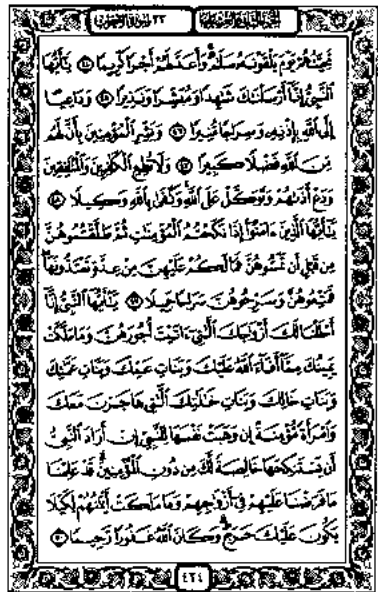 الجزء الثاني والعشرون ٣٣ سورة الأحزاب
تَحِيَّتُهُمْ يَوْمَ يَلْقَوْنَهُۥ سَلَٰمٌ ۚ وَأَعَدَّ لَهُمْ أَجْرًا كَرِيمًا ﴿٤٤﴾ يَٰٓأَيُّهَا
ٱلنَّبِىُّ إِنَّآ أَرْسَلْنَٰكَ شَٰهِدًا وَمُبَشِّرًا وَنَذِيرًا ﴿٤٥﴾ وَدَاعِيًا
إِلَى ٱللَّهِ بِإِذْنِهِۦ وَسِرَاجًا مُّنِيرًا ﴿٤٦﴾ وَبَشِّرِ ٱلْمُؤْمِنِينَ بِأَنَّ لَهُم
مِّنَ ٱللَّهِ فَضْلًا كَبِيرًا ﴿٤٧﴾ وَلَا تُطِعِ ٱلْكَٰفِرِينَ وَٱلْمُنَٰفِقِينَ
وَدَعْ أَذَىٰهُمْ وَتَوَكَّلْ عَلَى ٱللَّهِ ۚ وَكَفَىٰ بِٱللَّهِ وَكِيلًا ﴿٤٨﴾
يَٰٓأَيُّهَا ٱلَّذِينَ ءَامَنُوٓا۟ إِذَا نَكَحْتُمُ ٱلْمُؤْمِنَٰتِ ثُمَّ طَلَّقْتُمُوهُنَّ
مِن قَبْلِ أَن تَمَسُّوهُنَّ فَمَا لَكُمْ عَلَيْهِنَّ مِنْ عِدَّةٍ تَعْتَدُّونَهَا ۖ
فَمَتِّعُوهُنَّ وَسَرِّحُوهُنَّ سَرَاحًا جَمِيلًا ﴿٤٩﴾ يَٰٓأَيُّهَا ٱلنَّبِىُّ إِنَّآ
أَحْلَلْنَا لَكَ أَزْوَٰجَكَ ٱلَّٰتِىٓ ءَاتَيْتَ أُجُورَهُنَّ وَمَا مَلَكَتْ
يَمِينُكَ مِمَّآ أَفَآءَ ٱللَّهُ عَلَيْكَ وَبَنَاتِ عَمِّكَ وَبَنَاتِ عَمَّٰتِكَ
وَبَنَاتِ خَالِكَ وَبَنَاتِ خَٰلَٰتِكَ ٱلَّٰتِى هَاجَرْنَ مَعَكَ
وَٱمْرَأَةً مُّؤْمِنَةً إِن وَهَبَتْ نَفْسَهَا لِلنَّبِىِّ إِنْ أَرَادَ ٱلنَّبِىُّ
أَن يَسْتَنكِحَهَا خَالِصَةً لَّكَ مِن دُونِ ٱلْمُؤْمِنِينَ ۗ قَدْ عَلِمْنَا
مَا فَرَضْنَا عَلَيْهِمْ فِىٓ أَزْوَٰجِهِمْ وَمَا مَلَكَتْ أَيْمَٰنُهُمْ لِكَيْلَا
يَكُونَ عَلَيْكَ حَرَجٌ ۗ وَكَانَ ٱللَّهُ غَفُورًا رَّحِيمًا ﴿٥٠﴾
٤٢٤